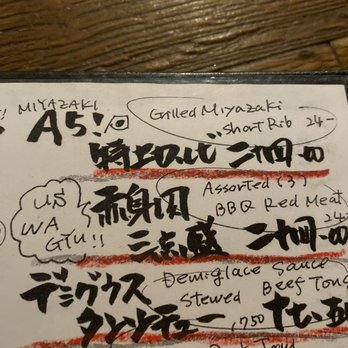 MIYAZAKI
A5!!
Grilled Miyazaki
Short Rib 24-
特上カルビ 二四・〇
US
WAGYU!!
赤身肉
Assorted (3)
BBQ Red Meat
24-
三点盛 二四・〇
デミグラス
Demiglace Sauce
Stewed Beef Tong
タンシチュー
17.50
十七・五